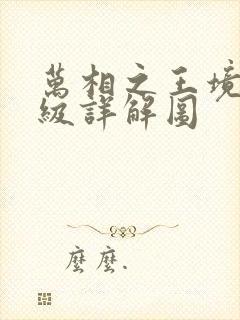 萬相之王境
級詳解圖
麼麼.